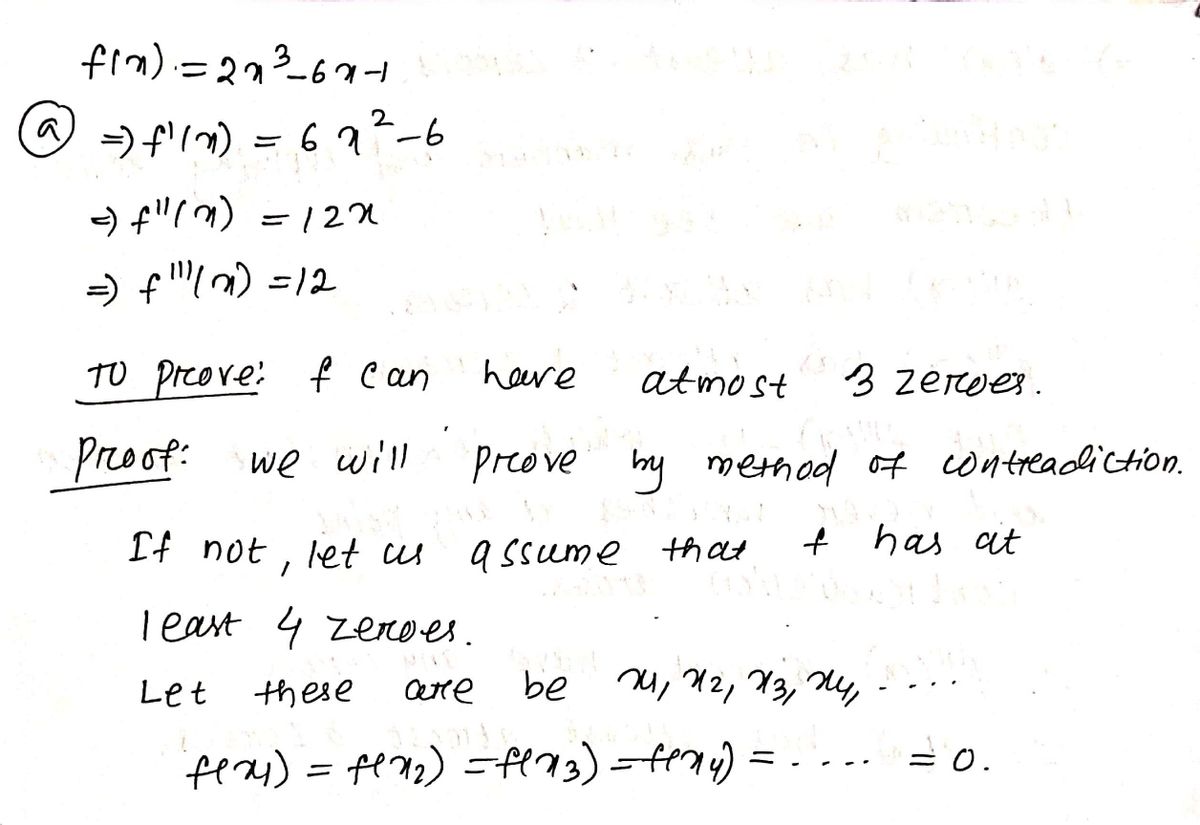 f(x) = 2x³-6x-1
ⓐ ⇒ f'(x) = 6x²-6
⇒ f''(x) = 12x
⇒ f'''(x) = 12
To prove: f can have atmost 3 zeroes.
Proof: we will prove by method of contradiction.
If not, let us assume that f has at
least 4 zeroes.
Let these are be x₁, x₂, x₃, x₄, ....
f(x₁) = f(x₂) = f(x₃) = f(x₄) = ..... = 0.